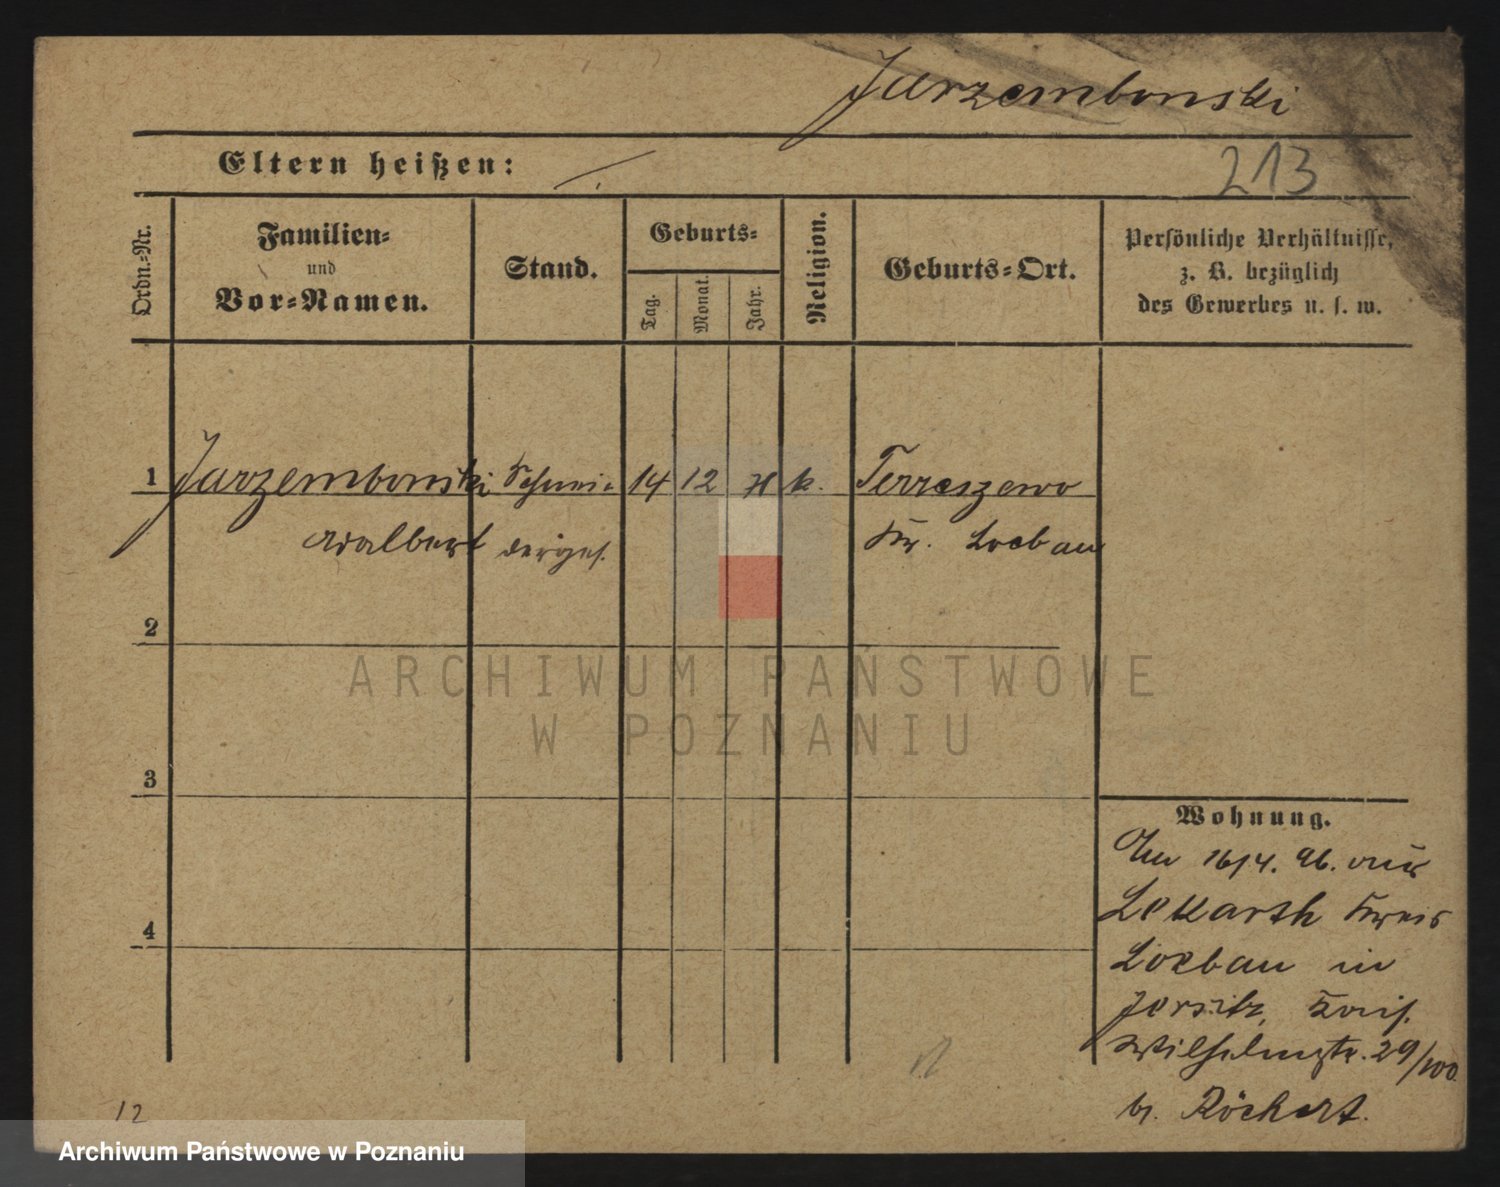 Jarzembowski
Eltern heißen:
213
Ordn.-Nr.
Familien-
und
Vor-Namen.
Stand.
Geburts-
Tag.
Monat.
Jahr.
Religion.
Geburts-Ort.
Persönliche Verhältnisse,
z. B. bezüglich
des Gewerbes u. s. w.
1 Jarzembowski Schnei- 14 12 k. Terreszewo
Adalbert derges. Kr. Loebau
2
3
4
Wohnung.
Am 16/4. 96. aus
Lekarth Kreis
Loebau in
Jersitz, Kais.
Wilhelmstr. 29/100
b. Röchert.
12
ARCHIWUM PAŃSTWOWE
W POZNANIU
Archiwum Państwowe w Poznaniu